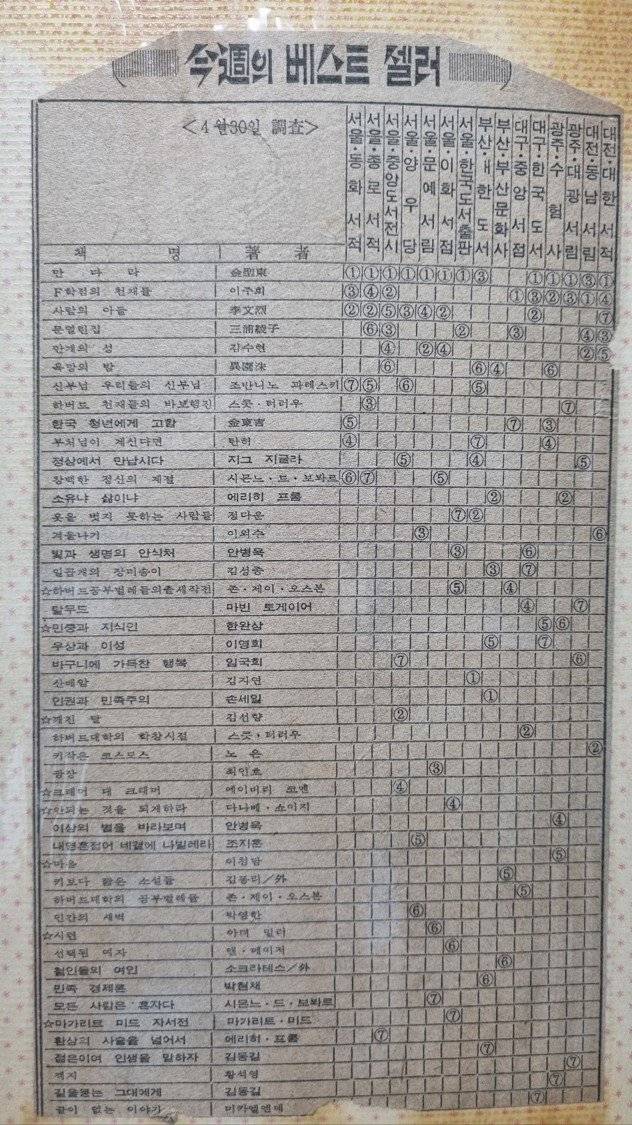 今週의 베스트 셀러
<4월30일 調査>
서울·동화 서적
서울·종로 서적
서울·중앙도서전시
서울·양우당
서울·문예 서림
서울·이화 서점
서울·한국도서출판
부산·대한 도서
부산·부산문화사
대구·중앙 서점
대구·한국 도서
광주·수험사
광주·대광 서림
대전·동남 서림
대전·대한 서적
책 명 著者
만다라 金聖東 ① ① ① ① ① ① ① ③ ① ① ① ③ ①
F학점의 천재들 이주희 ③ ④ ② ① ③ ② ③ ① ④
사람의 아들 李文烈 ② ② ⑤ ③ ④ ② ② ⑦
문열린집 三浦綾子 ⑥ ③ ② ③ ④ ③
안개의 성 김수현 ④ ② ④ ② ⑤
욕망의 밤 ⑥ ⑥ ④ ⑥
신부님 우리들의 신부님 조반니노 과레스키 ⑦ ⑤ ⑥ ⑤
하버드 천재들의 바보행진 스콧·터러우 ③ ⑦
한국 청년에게 고함 金東吉 ⑤ ⑦ ③
부처님이 계신다면 탄허 ④ ⑦ ④
정상에서 만납시다 지그 지글라 ⑤ ④ ⑤
창백한 정신의 계절 시몬느·드·보봐르 ⑥ ⑦ ⑤
소유냐 삶이냐 에리히 프롬 ② ②
옷을 벗지 못하는 사람들 정다운 ⑦ ②
겨울나기 이외수 ③ ⑥
빛과 생명의 안식처 안병욱 ③ ⑥
일곱개의 장미송이 김성종 ③ ⑦
☆하버드공부벌레들의졸세작전 존·제이·오스본 ⑤ ④
탈무드 마빈 토케이어 ④ ⑦
☆민중과 지식인 한완상 ⑤ ⑥
우상과 이성 이영희 ⑤ ⑦
바구니에 가득찬 행복 임국희 ⑦ ⑥
산배암 김자연 ①
인권과 민족주의 손세일 ①
☆깨진 달 김선향 ②
하버드대학의 학창시절 스콧·터러우 ②
키작은 코스모스 노은 ②
광장 최인호 ③
☆크레머 대 크레머 에이버리 코맨 ④
☆안되는 것을 되게하라 다나베·쇼이지 ④
이상의 별을 바라보며 안병욱 ④
내영혼접어 네곁에 나빌레라 조지훈 ⑤
☆마을 이정남 ⑤
키보다 짧은 소설들 김동리/外 ⑤
하버드대학의 공부벌레들 존·제이·오스본 ⑤
인간의 새벽 박영한 ⑥
☆시련 아더 밀러 ⑥
선택된 여자 앤·메이저 ⑥
철인들의 여인 소크라테스/外 ⑥
민족 경제론 박현채 ⑥
모든 사람은 혼자다 시몬느·드·보봐르 ⑦
☆마가리트 미드 자서전 마가리트·미드 ⑦
환상의 사슬을 넘어서 에리히·프롬 ⑦
젊은이여 인생을 말하자 김동길 ⑦
객지 황석영 ⑦
길을묻는 그대에게 김동길 ⑦
끝이 없는 이야기 미카엘엔데